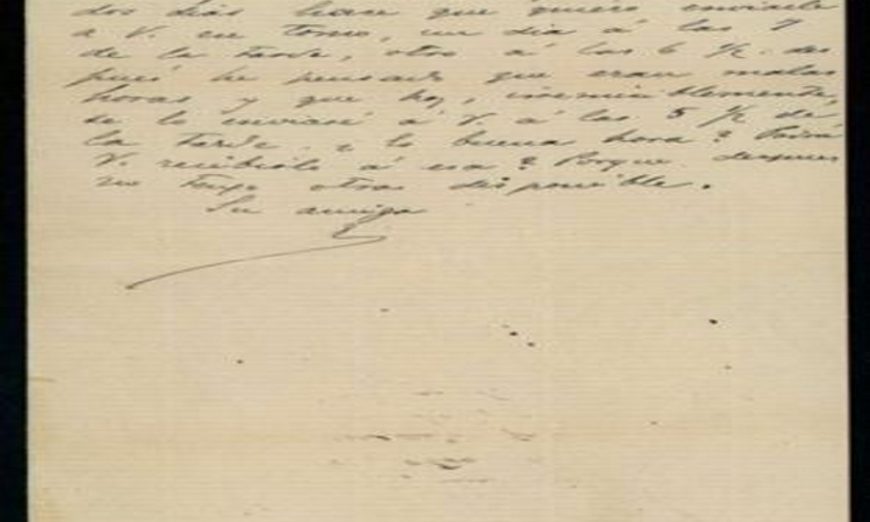 dos dias hace que quiero enviarle
a V. un tomo, un dia á las 7
de la tarde, otro á las 6 ½. des
pués he pensado que eran malas
horas y que hoy,
se lo enviaré á V. á las 5 ½ de
la tarde. ¿ es buena hora? Podrá
V. recibirlo á esa? Porque despues
no tengo otra disponible.
Su amigo